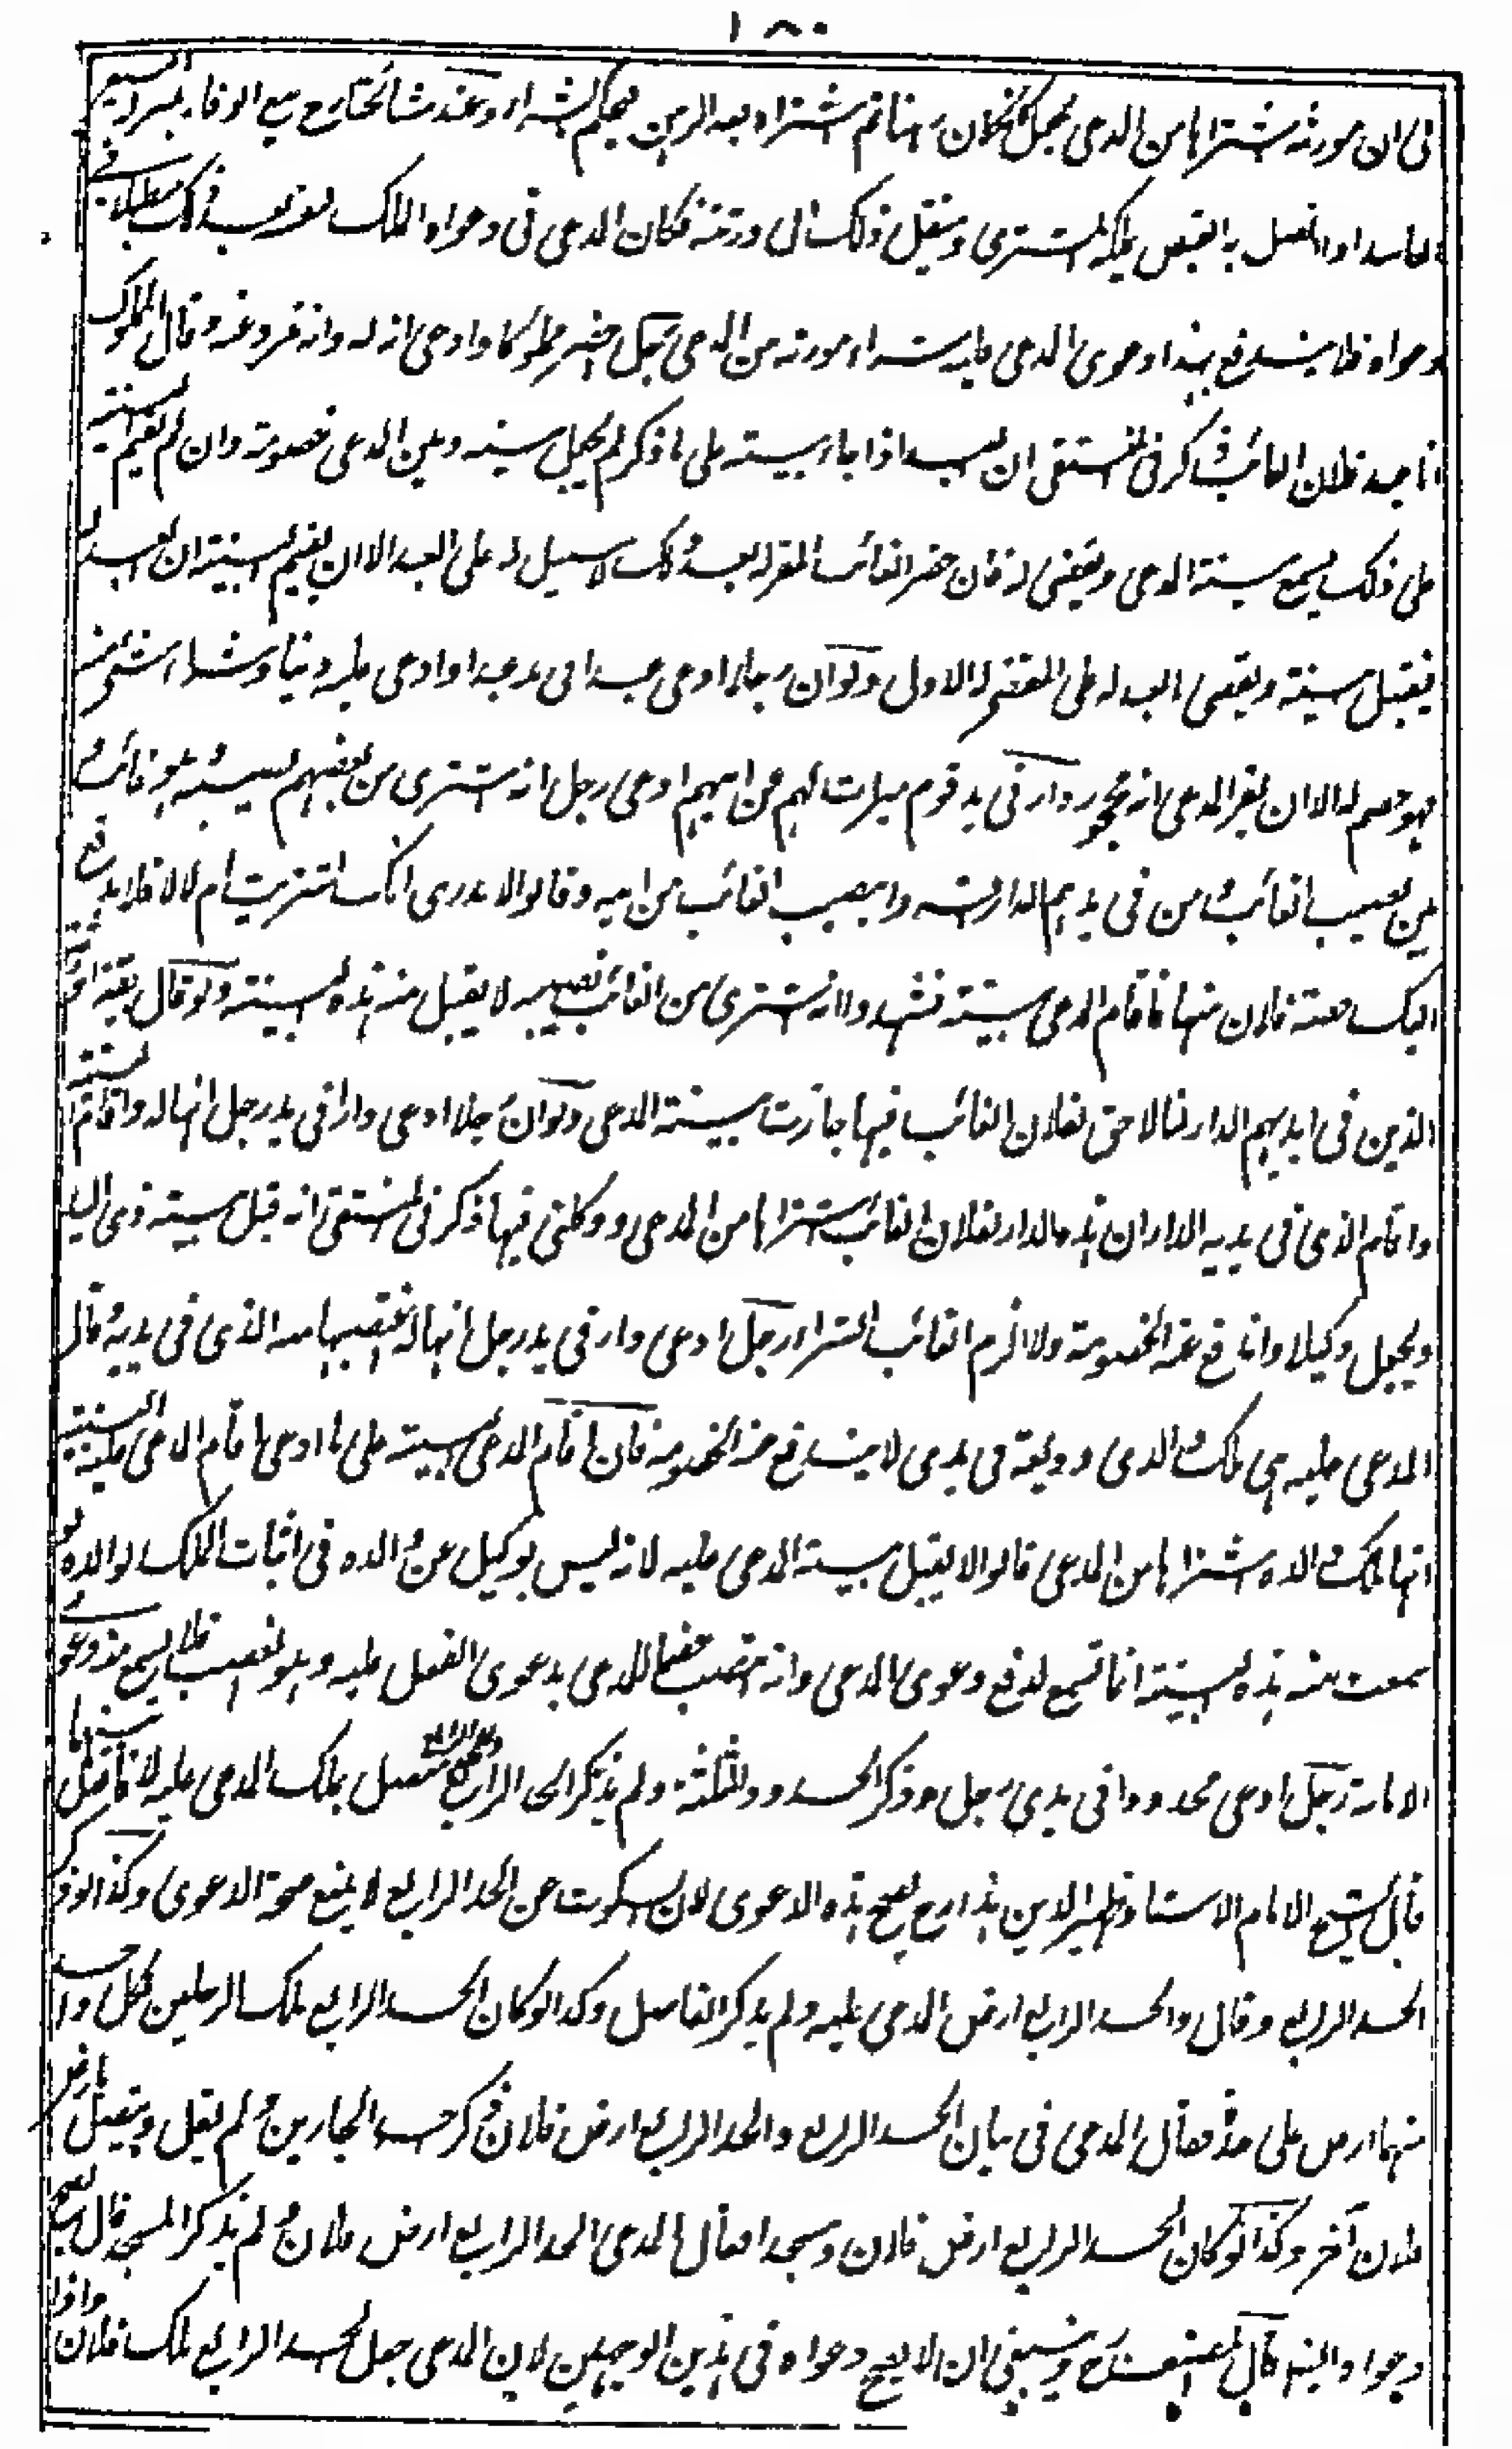 ١٨٠
في ان مورثه اشتراها من المدعي يجعل كأنه كان رهنا ثم اشتراه بعد الرهن فيحكم بالشراء وعند مشائخنا رح بيع الوفاء بمنزلة البيع
الفاسد اذا اتصل به القبض يملكه المشتري وينتقل ذلك الى ورثته فكان المدعي في دعواه الملك لنفسه بعد ذلك مبطلا في
دعواه فلا يندفع بهذا دعوى المدعي عليه شراء مورثه من المدعي رجل احضر مملوكا وادعى انه له وانه تمرد عنه وقال المملوك
انا عبد فلان الغائب ذكر في المنتقى ان العبد اذا جاء ببينة على ما ذكر لم يجعل بينه وبين المدعي خصومة وان لم يقم البينة
على ذلك يسمع بينة المدعي ويقضى له فان حضر الغائب المقر له بعد ذلك لا سبيل له على العبد الا ان يقيم البينة ان العبد له
فيقبل بينته ويقضى بالعبد له على المقضي له الاول ولو ان رجلا ادعى عبدا في يد عبد او ادعى عليه دينا او شراء شيء منه
فهو خصم له الا ان يقر المدعي انه محجور دار في يد قوم ميراث لهم عن ابيهم ادعى رجل انه اشترى من بعضهم نصيبه وهو غائب و
بين نصيب الغائب ومن في يديهم الدار ورثة وانصيب الغائب من ابيه وقالوا لا ندري انك اشتريت ام لا فلا يدفع
اليك حصة فلان منها فاقام المدعي بينة فشهدوا انه اشترى من الغائب نصيبه لا يقبل منه هذه البينة ولو قال بقية الورثة
الذين في ايديهم الدار لنا لا حق لفلان الغائب فيها جازت بينة المدعي ولو ان رجلا ادعى دارا في يد رجل انها له واقام البينة
واقام الذي في يديه الدار ان هذه الدار لفلان الغائب اشتراها من المدعي ووكلني فيها ذكر في المنتقى انه قبل بينة ذي اليد
ويجعل وكيلا واندفع عنه الخصومة ولا الزم الغائب الشراء رجل ادعى دارا في يد رجل انها له اغتصبها منه الذي في يديه قال
المدعى عليه هي ملك والدي ووديعة في يدي لا يندفع عنه الخصومة فان اقام المدعي بينة على ما ادعى فاقام المدعى عليه البينة
انها ملك والده اشتراها من المدعي قالوا لا يقبل بينة المدعى عليه لانه ليس بوكيل عن والده في اثبات الملك لوالده لو
سمعت منه هذه البينة انما تسمع لدفع دعوى المدعي وانه انتصب خصما للمدعي بدعوى الفعل عليه وهو الغصب فلا يسمع منه دعوى
الامانة رجل ادعى محدودا في يدي رجل وذكر الحدود الثلثة ولم يذكر الحد الرابع متصل بملك المدعى عليه لا فاصل بينهما
قال الشيخ الامام الاستاذ ظهير الدين هذا رح يصح هذه الدعوى لان السكوت عن الحد الرابع لا يمنع صحة الدعوى وكذا لو ذكر
الحد الرابع وقال والحد الرابع ارض المدعى عليه ولم يذكر الفاصل وكذا لو كان الحد الرابع ملك الرجلين لكل واحد
منهما ارض على حدة فقال المدعي في بيان الحد الرابع والحد الرابع ارض فلان ذكر احد الجارين ولم يقل ويتصل بارض
فلان آخر وكذا لو كان الحد الرابع ارض فلان ومسجدا فقال المدعي الحد الرابع ارض فلان ولم يذكر المسجد قال يصح
دعواه ايضا قال المصنف رح وينبغي ان لا يصح دعواه في هذين الوجهين لان المدعي جعل الحد الرابع ملك فلان واذا